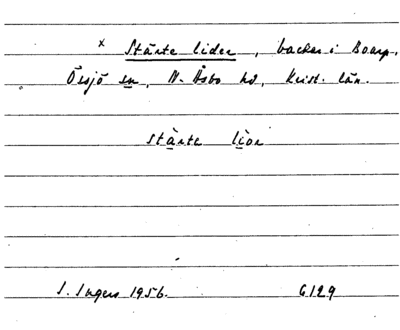 x Stärte lider, backar i Boarp,
Örsjö sn, N. Åsbo hd, Krist. län.
stärte lìar
I. Ingers 1956. 6129